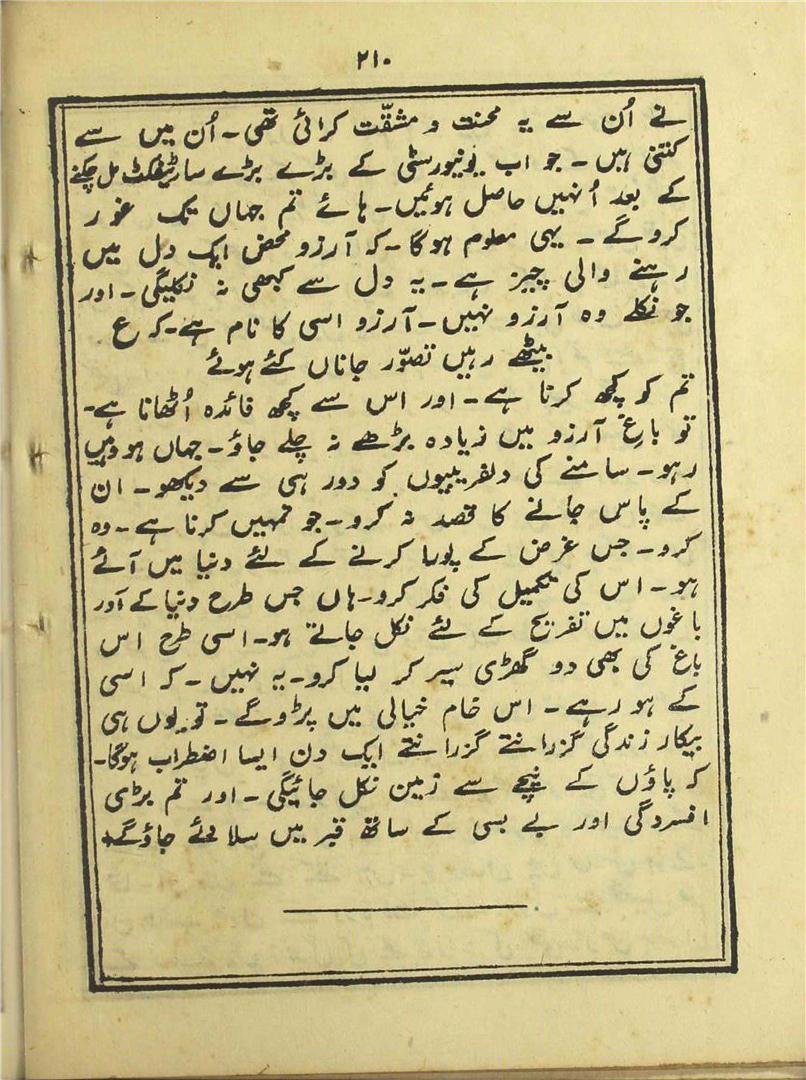 ۲۱۰
نے اُن سے یہ محنت و مشقّت کرائی تھی۔ اُن میں سے
کتنی ہیں۔ جو اب یونیورسٹی کے بڑے بڑے سارٹیفکٹ مل چکنے
کے بعد اُنہیں حاصل ہوئیں۔ ہائے تم جہاں تک غور
کروگے۔ یہی معلوم ہوگا۔ کہ آرزو محض ایک دل میں
رہنے والی چیز ہے۔ یہ دل سے کبھی نہ نکلیگی۔ اور
جو نکلے وہ آرزو نہیں۔ آرزو اسی کا نام ہے۔ کہ ع
بیٹھے رہیں تصوّر جاناں کئے ہوئے
تم کو کچھ کرنا ہے۔ اور اس سے کچھ فائدہ اُٹھانا ہے۔
تو باغِ آرزو میں زیادہ بڑھے نہ چلے جاؤ۔ جہاں ہو وہیں
رہو۔ سامنے کی دلفریبیوں کو دور ہی سے دیکھو۔ ان
کے پاس جانے کا قصد نہ کرو۔ جو تمہیں کرنا ہے۔ وہ
کرو۔ جس غرض کے پورا کرنے کے لئے دنیا میں آئے
ہو۔ اس کی تکمیل کی فکر کرو۔ ہاں جس طرح دنیا کے اور
باغوں میں تفریح کے لئے نکل جاتے ہو۔ اسی طرح اس
باغ کی بھی دو گھڑی سیر کر لیا کرو۔ یہ نہیں۔ کہ اسی
کے ہو رہے۔ اس خام خیالی میں پڑوگے۔ تو یوں ہی
بیکار زندگی گزرانتے گزرانتے ایک دن ایسا اضطراب ہوگا۔
کہ پاؤں کے نیچے سے زمین نکل جائیگی۔ اور تم بڑی
افسردگی اور بے بسی کے ساتھ قبر میں سلا دئے جاؤگے٭